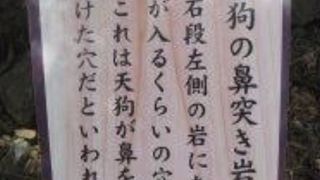 狗の鼻突き岩
石段左側の岩に
が入るくらいの穴
これは天狗が鼻を
けた穴だといわれ